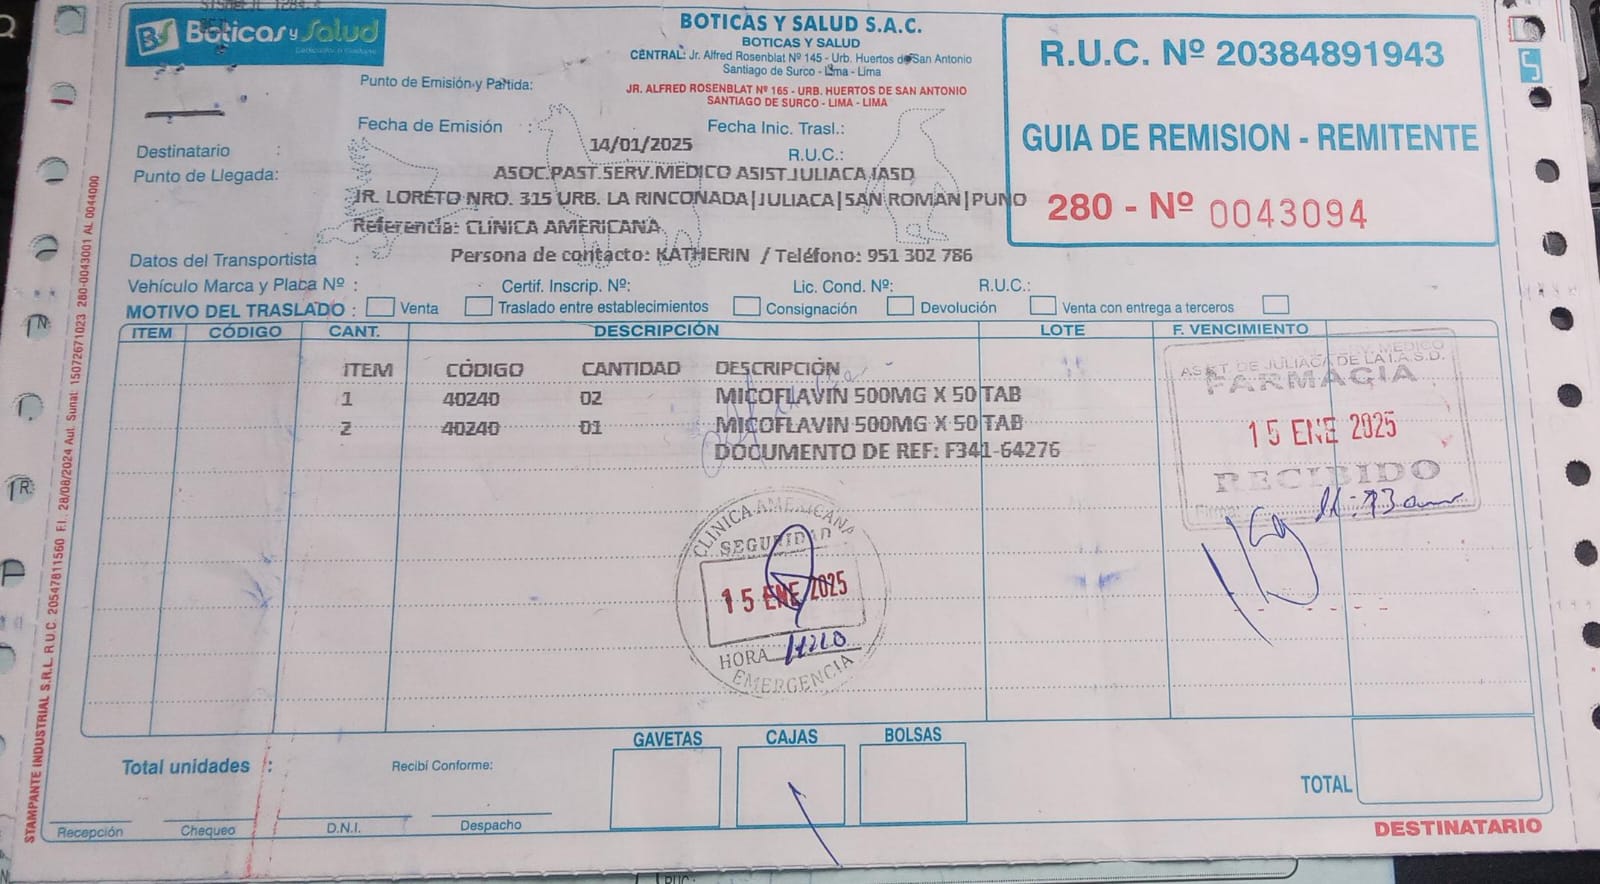 BS Boticas y Salud
BOTICAS Y SALUD S.A.C.
BOTICAS Y SALUD
CENTRAL: Jr. Alfred Rosenblat Nº 145 - Urb. Huertos de San Antonio
Santiago de Surco - Lima - Lima
JR. ALFRED ROSENBLAT Nº 165 - URB. HUERTOS DE SAN ANTONIO
SANTIAGO DE SURCO - LIMA - LIMA
R.U.C. Nº 20384891943
GUIA DE REMISION - REMITENTE
280 - Nº 0043094
Punto de Emisión y Partida:
Fecha de Emisión : 14/01/2025 Fecha Inic. Trasl.:
Destinatario : R.U.C.:
ASOC.PAST.SERV.MEDICO ASIST.JULIACA IASD
Punto de Llegada:
JR. LORETO NRO. 315 URB. LA RINCONADA|JULIACA|SAN ROMAN|PUNO
Referencia: CLINICA AMERICANA
Datos del Transportista : Persona de contacto: KATHERIN / Teléfono: 951 302 786
Vehículo Marca y Placa Nº : Certif. Inscrip. Nº: Lic. Cond. Nº: R.U.C.:
MOTIVO DEL TRASLADO : Venta Traslado entre establecimientos Consignación Devolución Venta con entrega a terceros
ITEM CÓDIGO CANT. DESCRIPCIÓN LOTE F. VENCIMIENTO
ITEM CÓDIGO CANTIDAD DESCRIPCIÓN
1 40240 02 MICOFLAVIN 500MG X 50 TAB
2 40240 01 MICOFLAVIN 500MG X 50 TAB
DOCUMENTO DE REF: F341-64276
SERV. MEDICO
ASIST. DE JULIACA DE LA I.A.S.D.
FARMACIA
15 ENE 2025
RECIBIDO
Firma:
CLINICA AMERICANA
SEGURIDAD
15 ENE 2025
HORA 11:20
EMERGENCIA
GAVETAS CAJAS BOLSAS
Total unidades : Recibí Conforme:
TOTAL
Recepción Chequeo D.N.I. Despacho
DESTINATARIO
STAMPANTE INDUSTRIAL S.R.L. R.U.C. 20547811560 F.I. 28/08/2024 Aut. Sunat 15072671023 280-0043001 AL 0044000